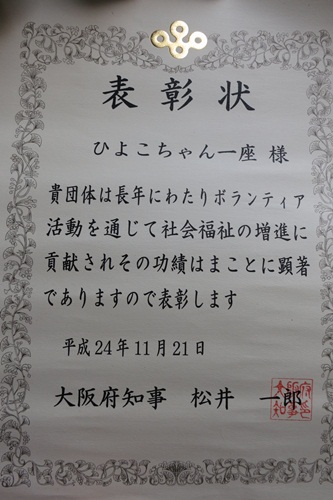 表彰状
ひよこちゃん一座 様
貴団体は長年にわたりボランティア
活動を通じて社会福祉の増進に
貢献されその功績はまことに顕著
でありますので表彰します
平成24年11月21日
大阪府知事 松井 一郎